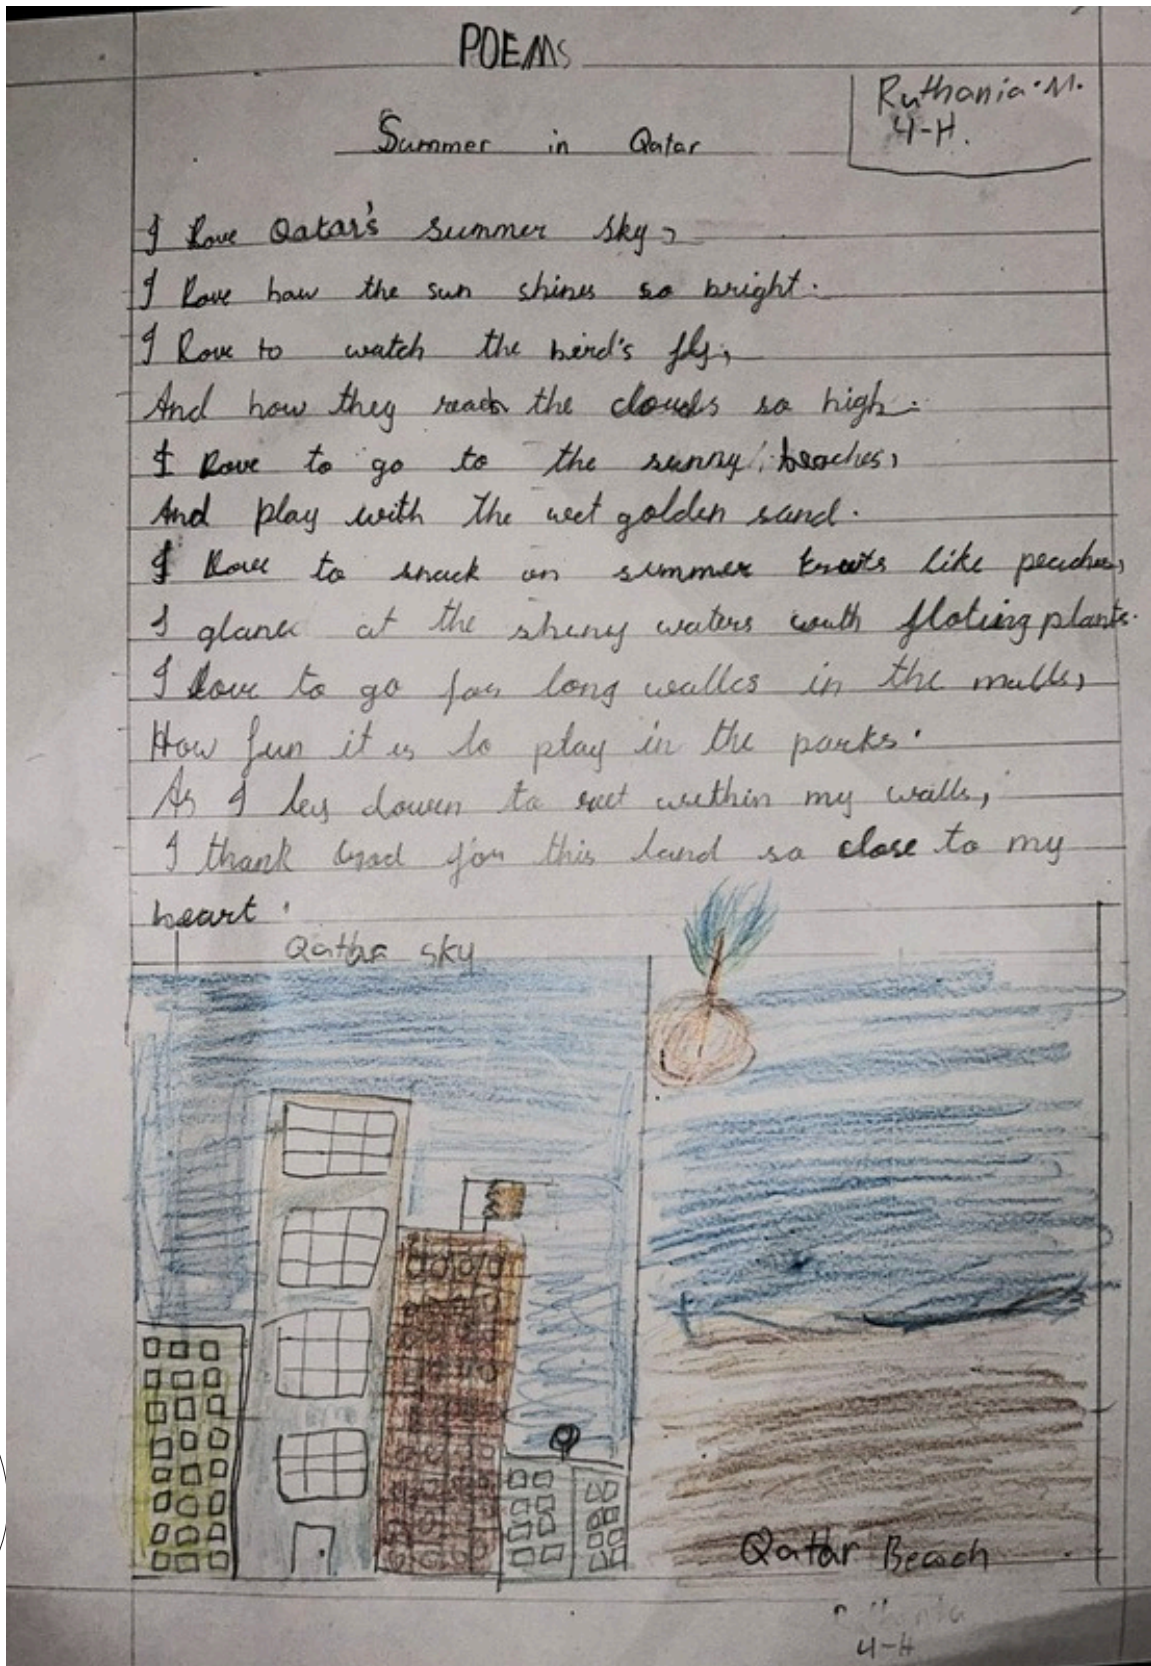 POEMS
Ruthania.M.
4-H.
Summer in Qatar
I Love Qatar's summer sky,
I Love how the sun shines so bright.
I Love to watch the bird's fly,
And how they reach the clouds so high.
I Love to go to the sunny beaches,
And play with the wet golden sand.
I Love to snack on summer treats like peaches,
I glance at the shiny waters with floting plants.
I love to go for long walks in the malls,
How fun it is to play in the parks.
As I lay down to rest within my walls,
I thank God for this land so close to my
heart.
Qatar sky
Qatar Beach
Ruthania
4-H